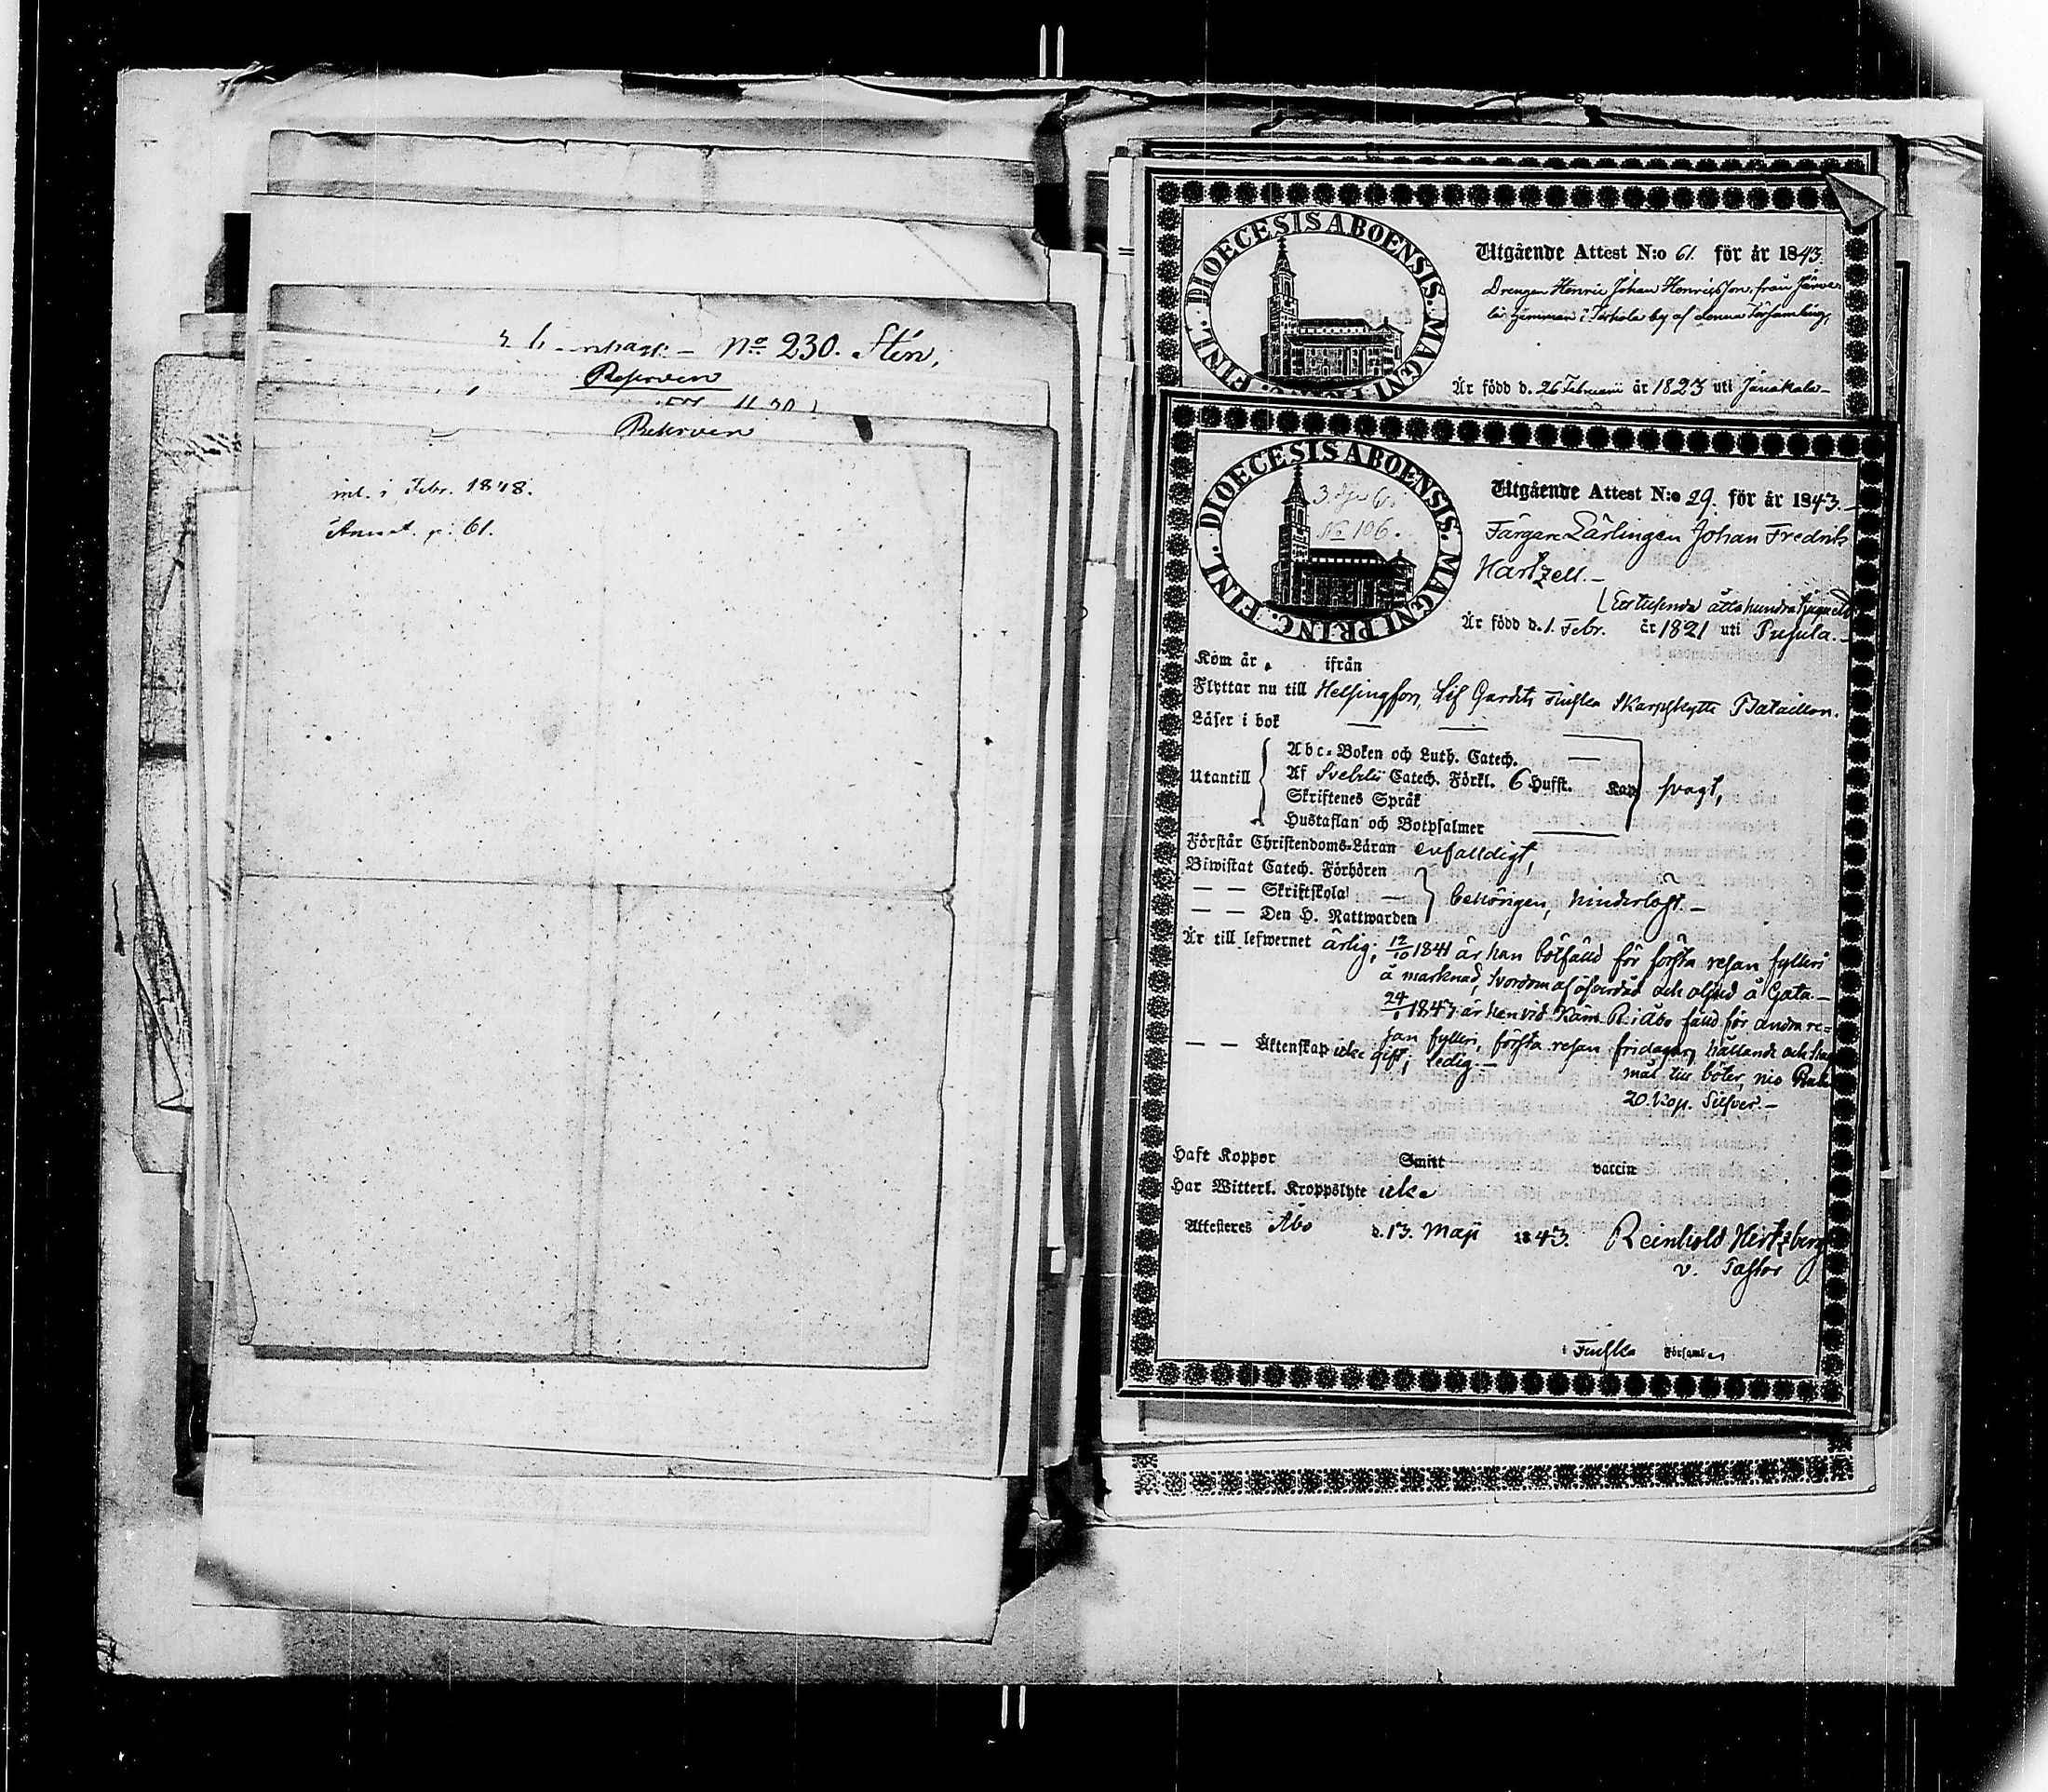 No 230. Stén,
Reserven
Reserven
inl. i Febr. 1848.
Annot. p. 61.
DIOECESIS ABOENSIS. MAGNI PRINC. FINL.
Utgående Attest N:o 61. för år 1843
Drengen Henric Johan Henricsson, från Järve-
lä hemman i Torhola by af denna Församling,
Är född d. 26 Februarii år 1823 uti Janakala
DIOECESIS ABOENSIS. MAGNI PRINC. FINL.
No 106.
Utgående Attest N:o 29. för år 1843.
Färgare Lärlingen Johan Fredrik
Hartzell.
(Ett tusende åtta hundra tjuguett)
Är född d. 1. Febr. år 1821 uti Pusula.
Kom år ifrån
Flyttar nu till Helsingfors, Lif Gardets Finska Skarpskytte Bataillon.
Läser i bok
Utantill
Abc-Boken och Luth. Catech.
Af Svebelii Catech. Förkl. 6 Hufst. Kap
Skriftenes Språk
Hustaflan och Botpsalmer
svagt,
Förstår Christendoms-Läran enfaldigt,
Biwistat Catech. Förhören
— — Skriftskola
— — Den H. Nattwarden
behörigen, hinderlöst.
Är till lefwernet ärlig; 12/10 1841 är han bötfäld för första resan fylleri
å marknad, svordom af öfverdåd och oljud å Gata.—
24/1 1843 är han vid Käm. R. i Åbo fäld för andra re-
san fylleri, första resan fridagars hållande och
mål till böter, nio Rub.
20. Kop. Silfver.—
— — Äktenskap icke gift, ledig.—
Haft Koppor Smitt vaccin
Har Witterl. Kroppslyte icke
Attesteres Åbo d. 13. Maji 1843. Reinhold Hertzberg
v. Pastor
i Finska Församl:n